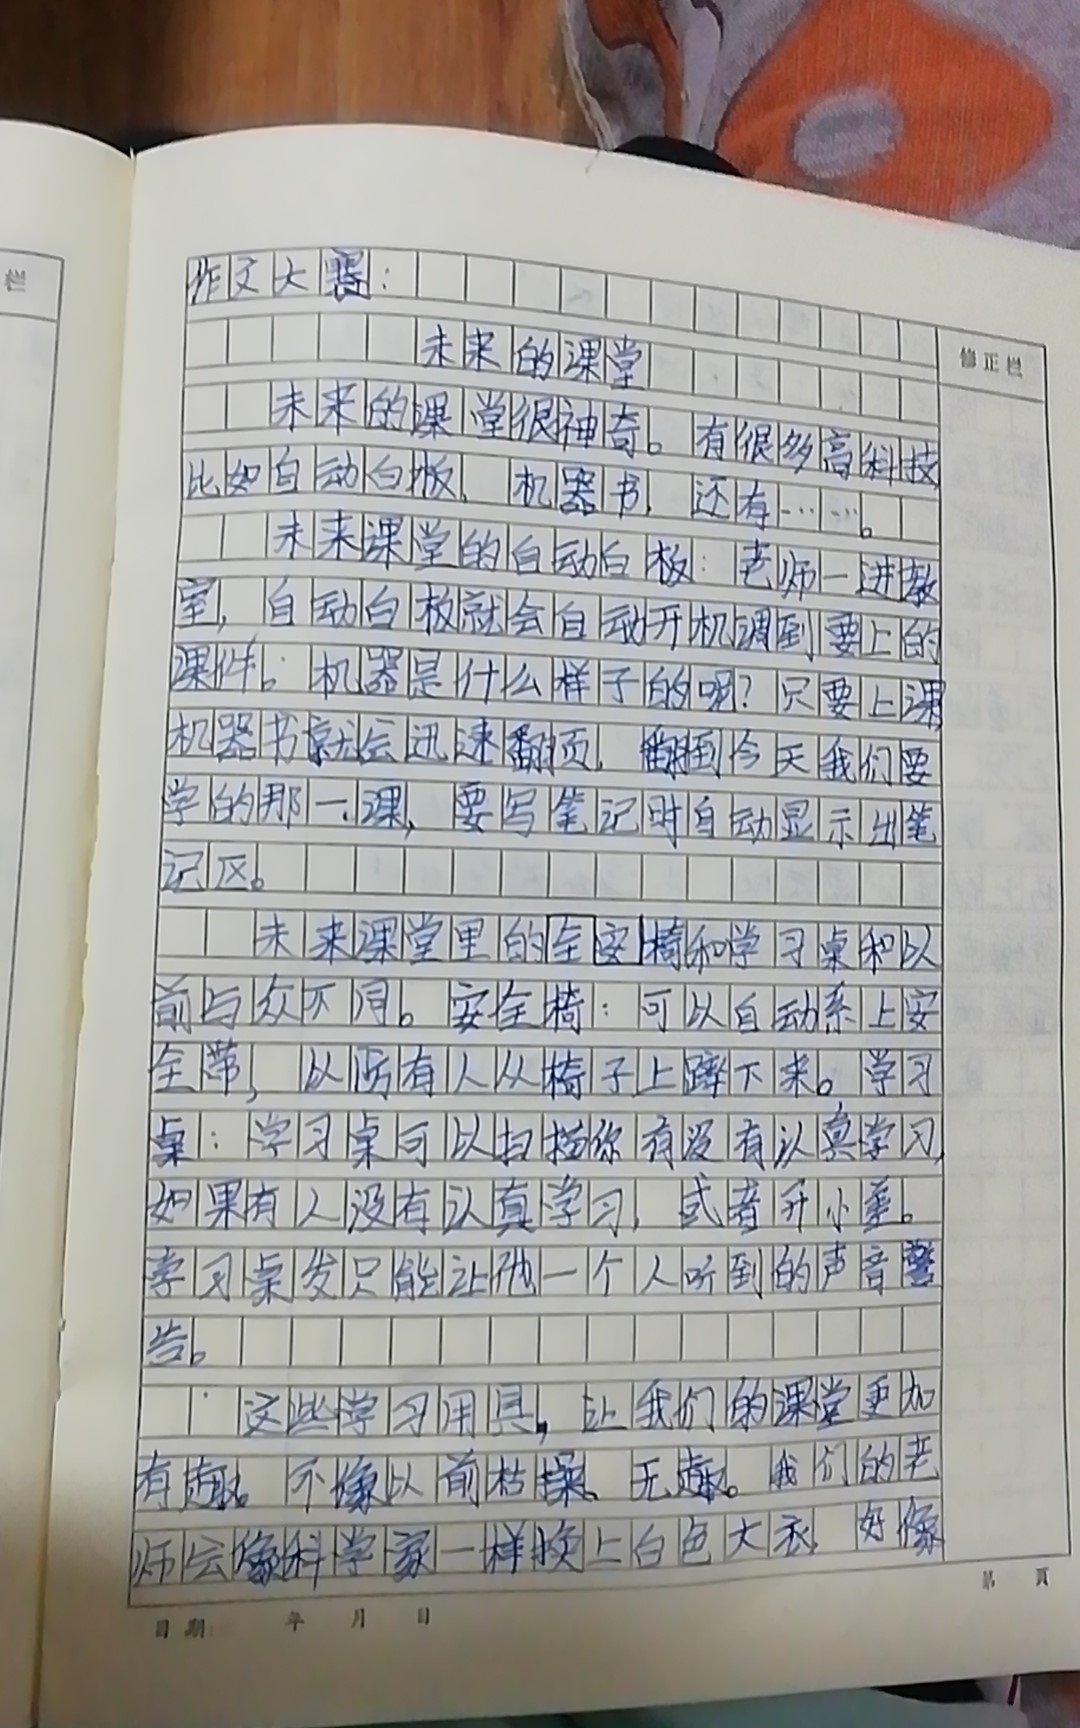 栏
作文大赛:
未来的课堂
修正栏
未来的课堂很神奇。有很多高科技
比如自动白板,机器书,还有……。
未来课堂的自动白板:老师一进教
室,自动白板就会自动开机调到要上的
课件。机器是什么样子的呢?只要上课
机器书就会迅速翻页,翻到今天我们要
学的那一课,要写笔记时自动显示出笔
记区。
未来课堂里的全安椅和学习桌和以
前与众不同。安全椅:可以自动系上安
全带,以防有人从椅子上蹿下来。学习
桌:学习桌可以扫描你有没有认真学习,
如果有人没有认真学习,或者开小差。
学习桌发只能让他一个人听到的声音警
告。
这些学习用具,让我们的课堂更加
有趣。不像以前枯燥、无趣。我们的老
师会像科学家一样换上白色大衣,好像
第 頁
日期: 年 月 日